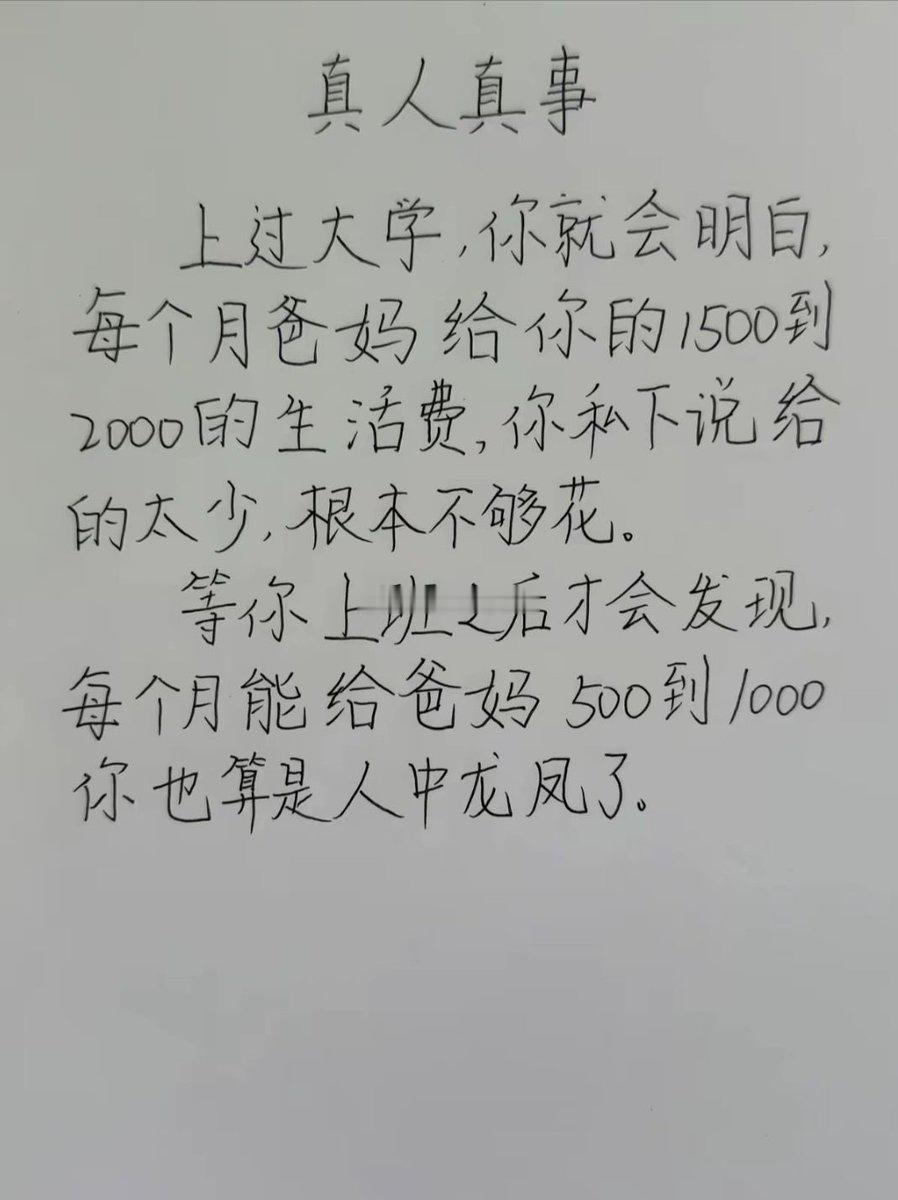 真人真事
上过大学,你就会明白,
每个月爸妈给你的1500到
2000的生活费,你私下说给
的太少,根本不够花。
等你上班之后才会发现,
每个月能给爸妈500到1000
你也算是人中龙凤了。